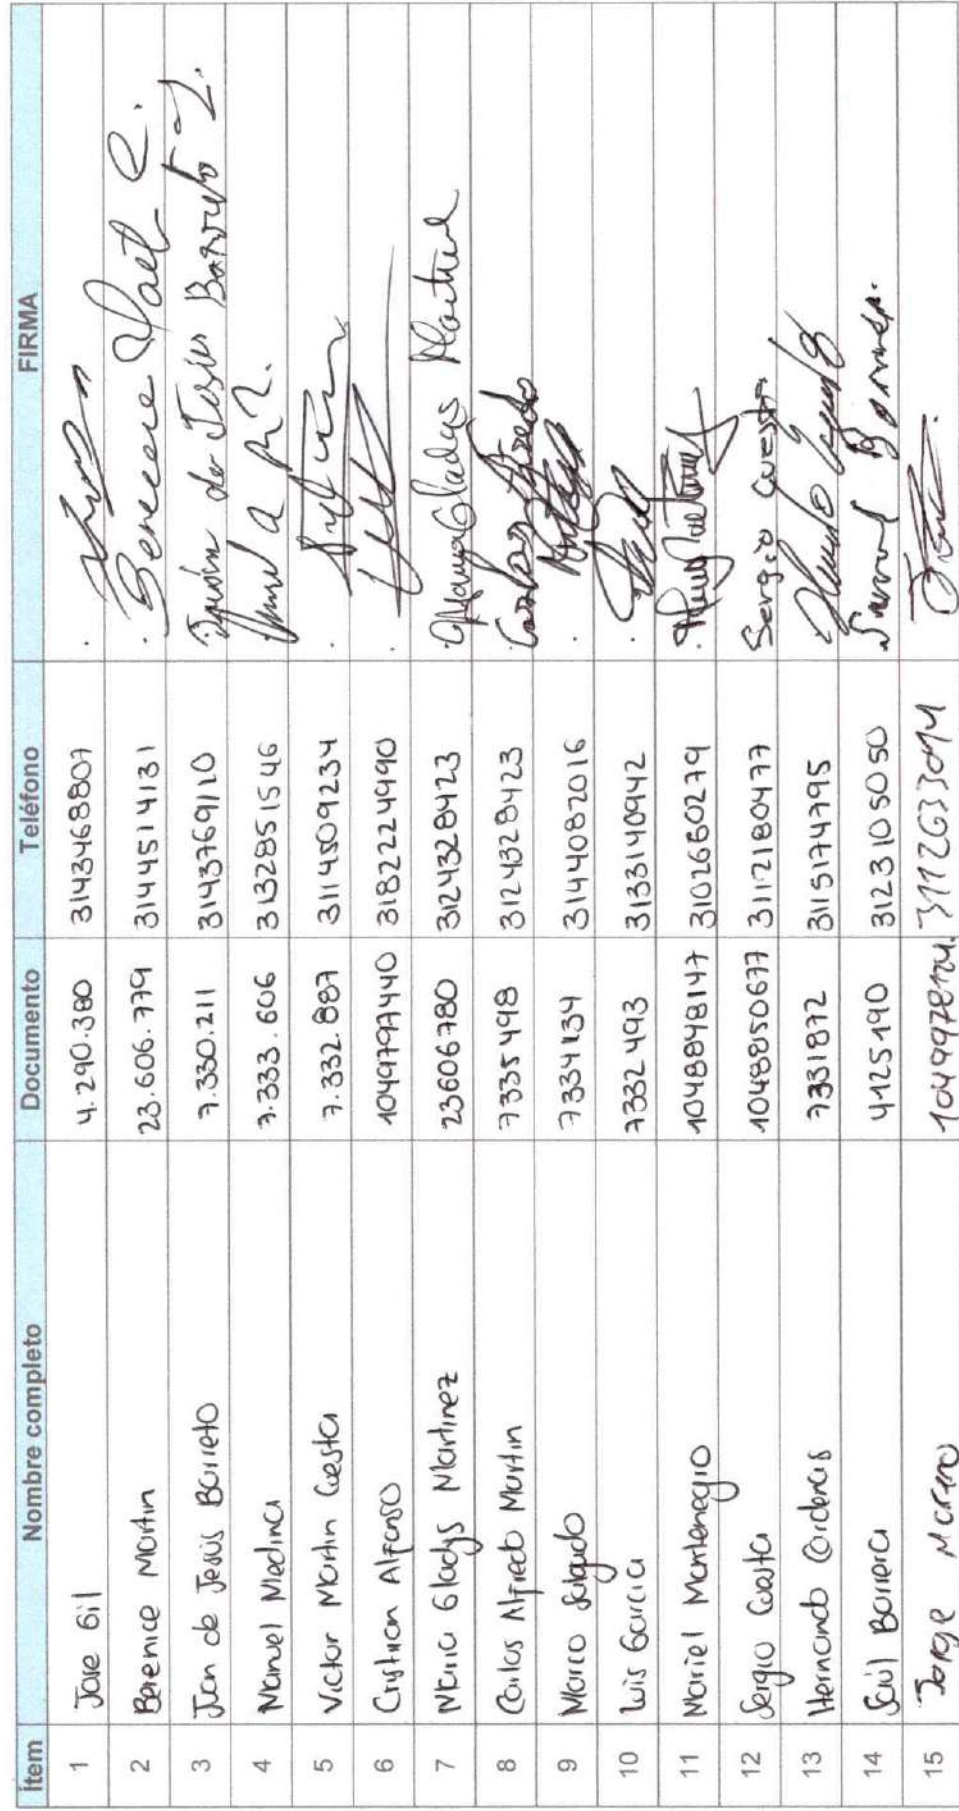 Ítem Nombre completo Documento Teléfono FIRMA
1 Jose Gil 4.290.380 3143468807
2 Berenice Martin 23.606.779 3144514131 Berenice
3 Juan de Jesús Barreto 7.330.211 3143769110 de Jesús Barreto
4 Manuel Medina 7.333.606 3132851546
5 Victor Martin Cuesta 7.332.887 3114509234
6 Cristian Alfonso 1049797440 3182224990
7 Maria Gladys Martinez 23606780 3124328423 Gladys
8 Carlos Alfredo Martin 7335498 3124328423 Carlos Alfredo
9 Marco Salgado 7334134 3144082016
10 Luis Garcia 7332493 3133140942
11 Mariel Montenegro 1048848147 3102660279
12 Sergio Cuesta 1048850677 3112180477 Sergio Cuesta
13 Hernando Cardenas 7331872 3115174795
14 Saúl Barrera 4125190 3123105050
15 Jorge Moreno